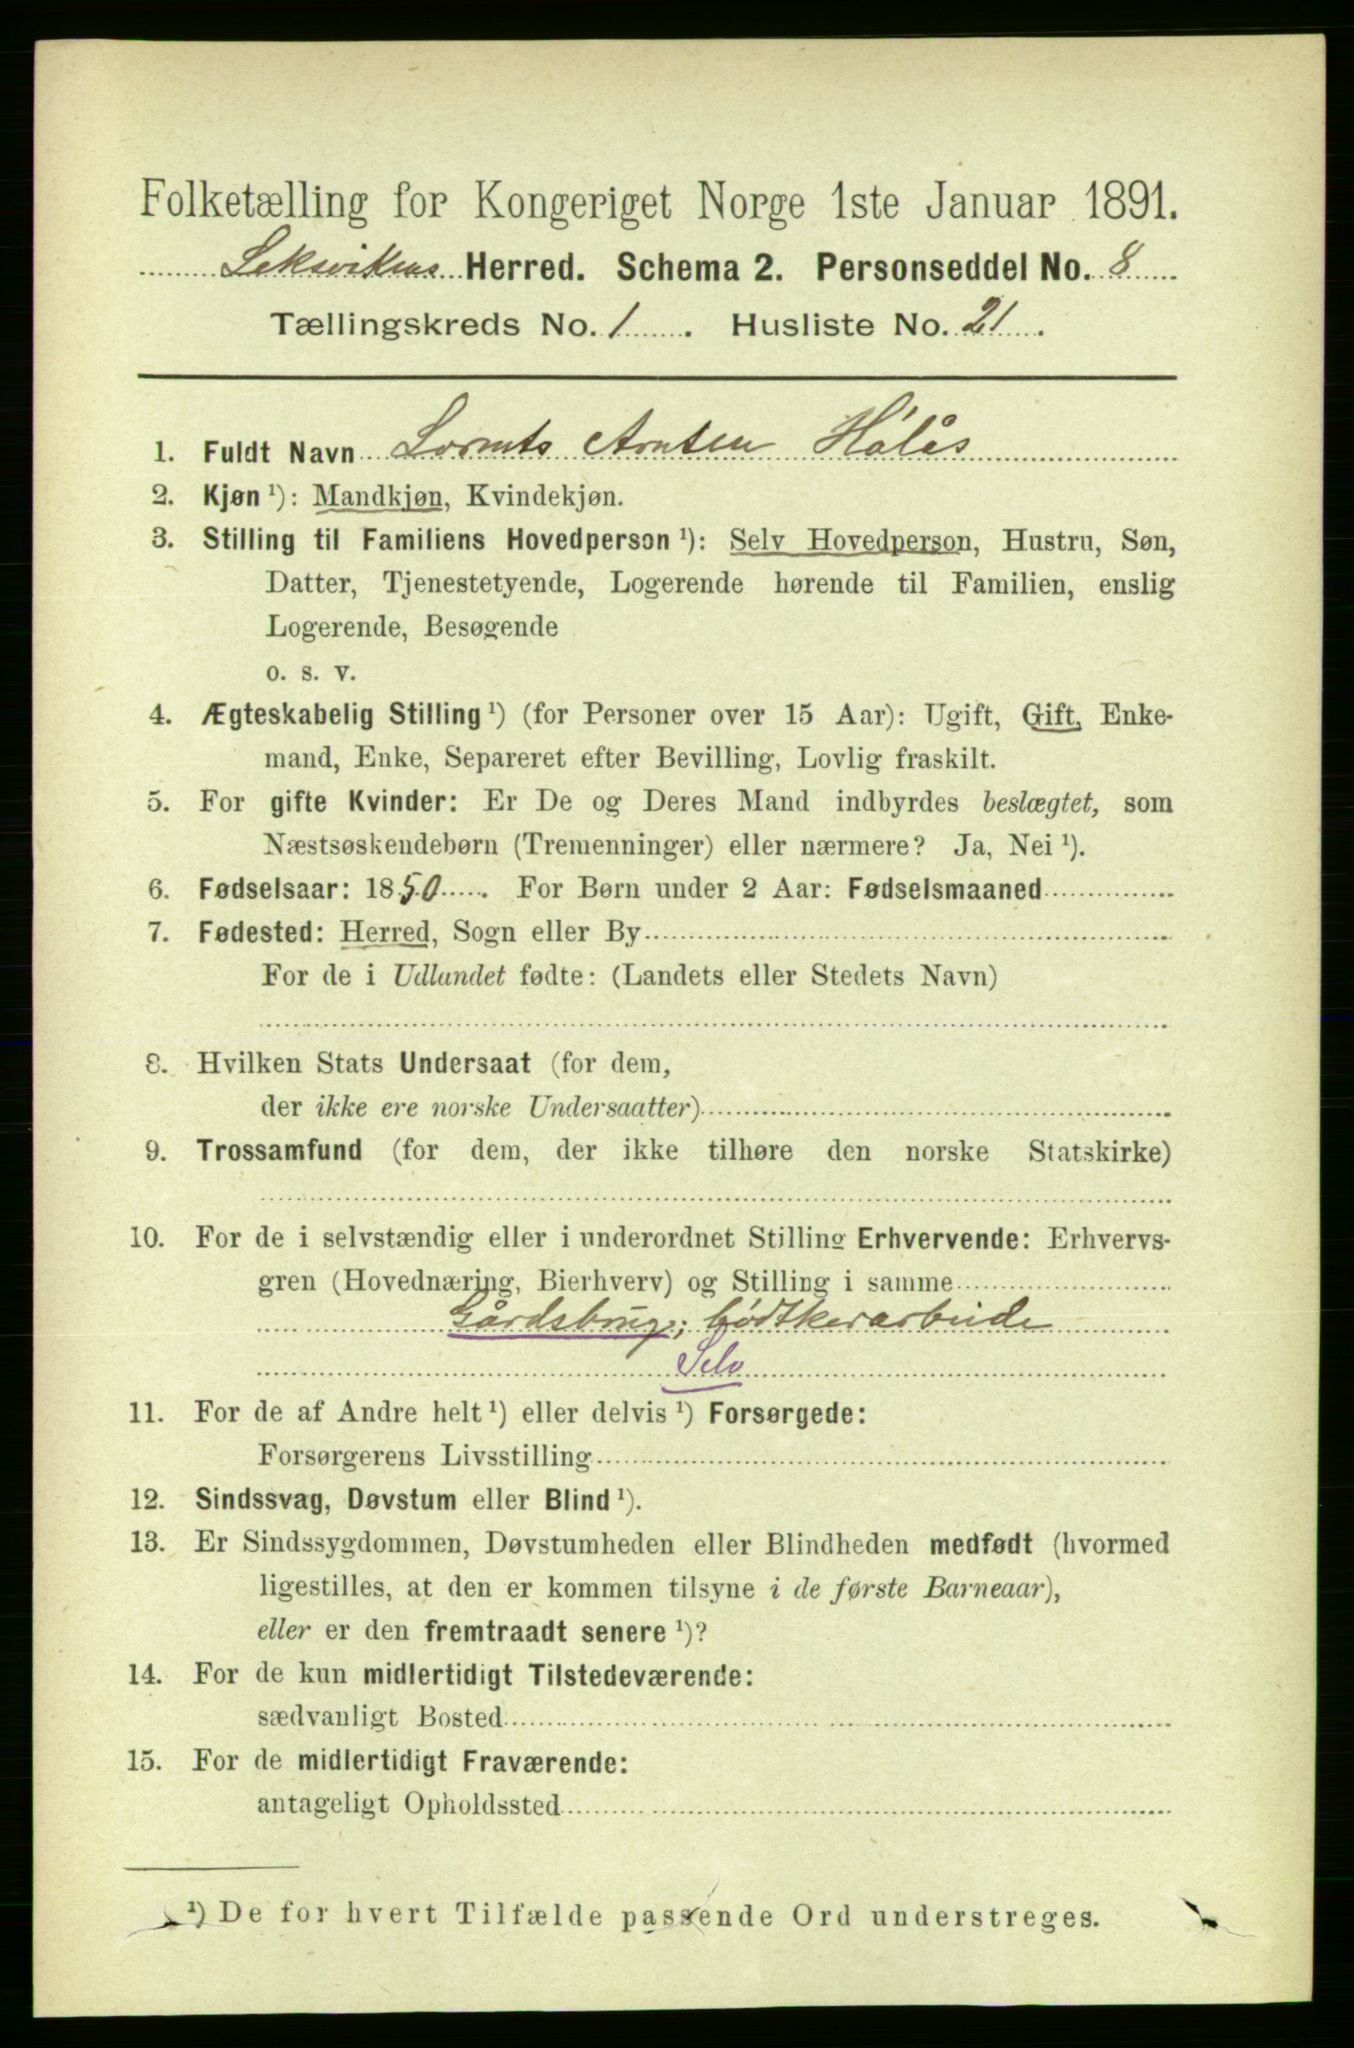 Folketælling for Kongeriget Norge 1ste Januar 1891.
Leksvikens Herred. Schema 2. Personseddel No. 8
Tællingskreds No. 1. Husliste No. 21.
1. Fuldt Navn Lornts Arntsen Hölås
2. Kjøn ¹): Mandkjøn, Kvindekjøn.
3. Stilling til Familiens Hovedperson ¹): Selv Hovedperson, Hustru, Søn,
Datter, Tjenestetyende, Logerende hørende til Familien, enslig
Logerende, Besøgende
o. s. v.
4. Ægteskabelig Stilling ¹) (for Personer over 15 Aar): Ugift, Gift, Enke-
mand, Enke, Separeret efter Bevilling, Lovlig fraskilt.
5. For gifte Kvinder: Er De og Deres Mand indbyrdes beslægtet, som
Næstsøskendebørn (Tremenninger) eller nærmere? Ja, Nei ¹).
6. Fødselsaar: 1850. For Børn under 2 Aar: Fødselsmaaned
7. Fødested: Herred, Sogn eller By
For de i Udlandet fødte: (Landets eller Stedets Navn)
8. Hvilken Stats Undersaat (for dem,
der ikke ere norske Undersaatter)
9. Trossamfund (for dem, der ikke tilhøre den norske Statskirke)
10. For de i selvstændig eller i underordnet Stilling Erhvervende: Erhvervs-
gren (Hovednæring, Bierhverv) og Stilling i samme
Gårdsbrug; bødtkerarbeide
Selv
11. For de af Andre helt ¹) eller delvis ¹) Forsørgede:
Forsørgerens Livsstilling
12. Sindssvag, Døvstum eller Blind ¹).
13. Er Sindssygdommen, Døvstumheden eller Blindheden medfødt (hvormed
ligestilles, at den er kommen tilsyne i de første Barneaar),
eller er den fremtraadt senere ¹)?
14. For de kun midlertidigt Tilstedeværende:
sædvanligt Bosted
15. For de midlertidigt Fraværende:
antageligt Opholdssted
¹) De for hvert Tilfælde passende Ord understreges.